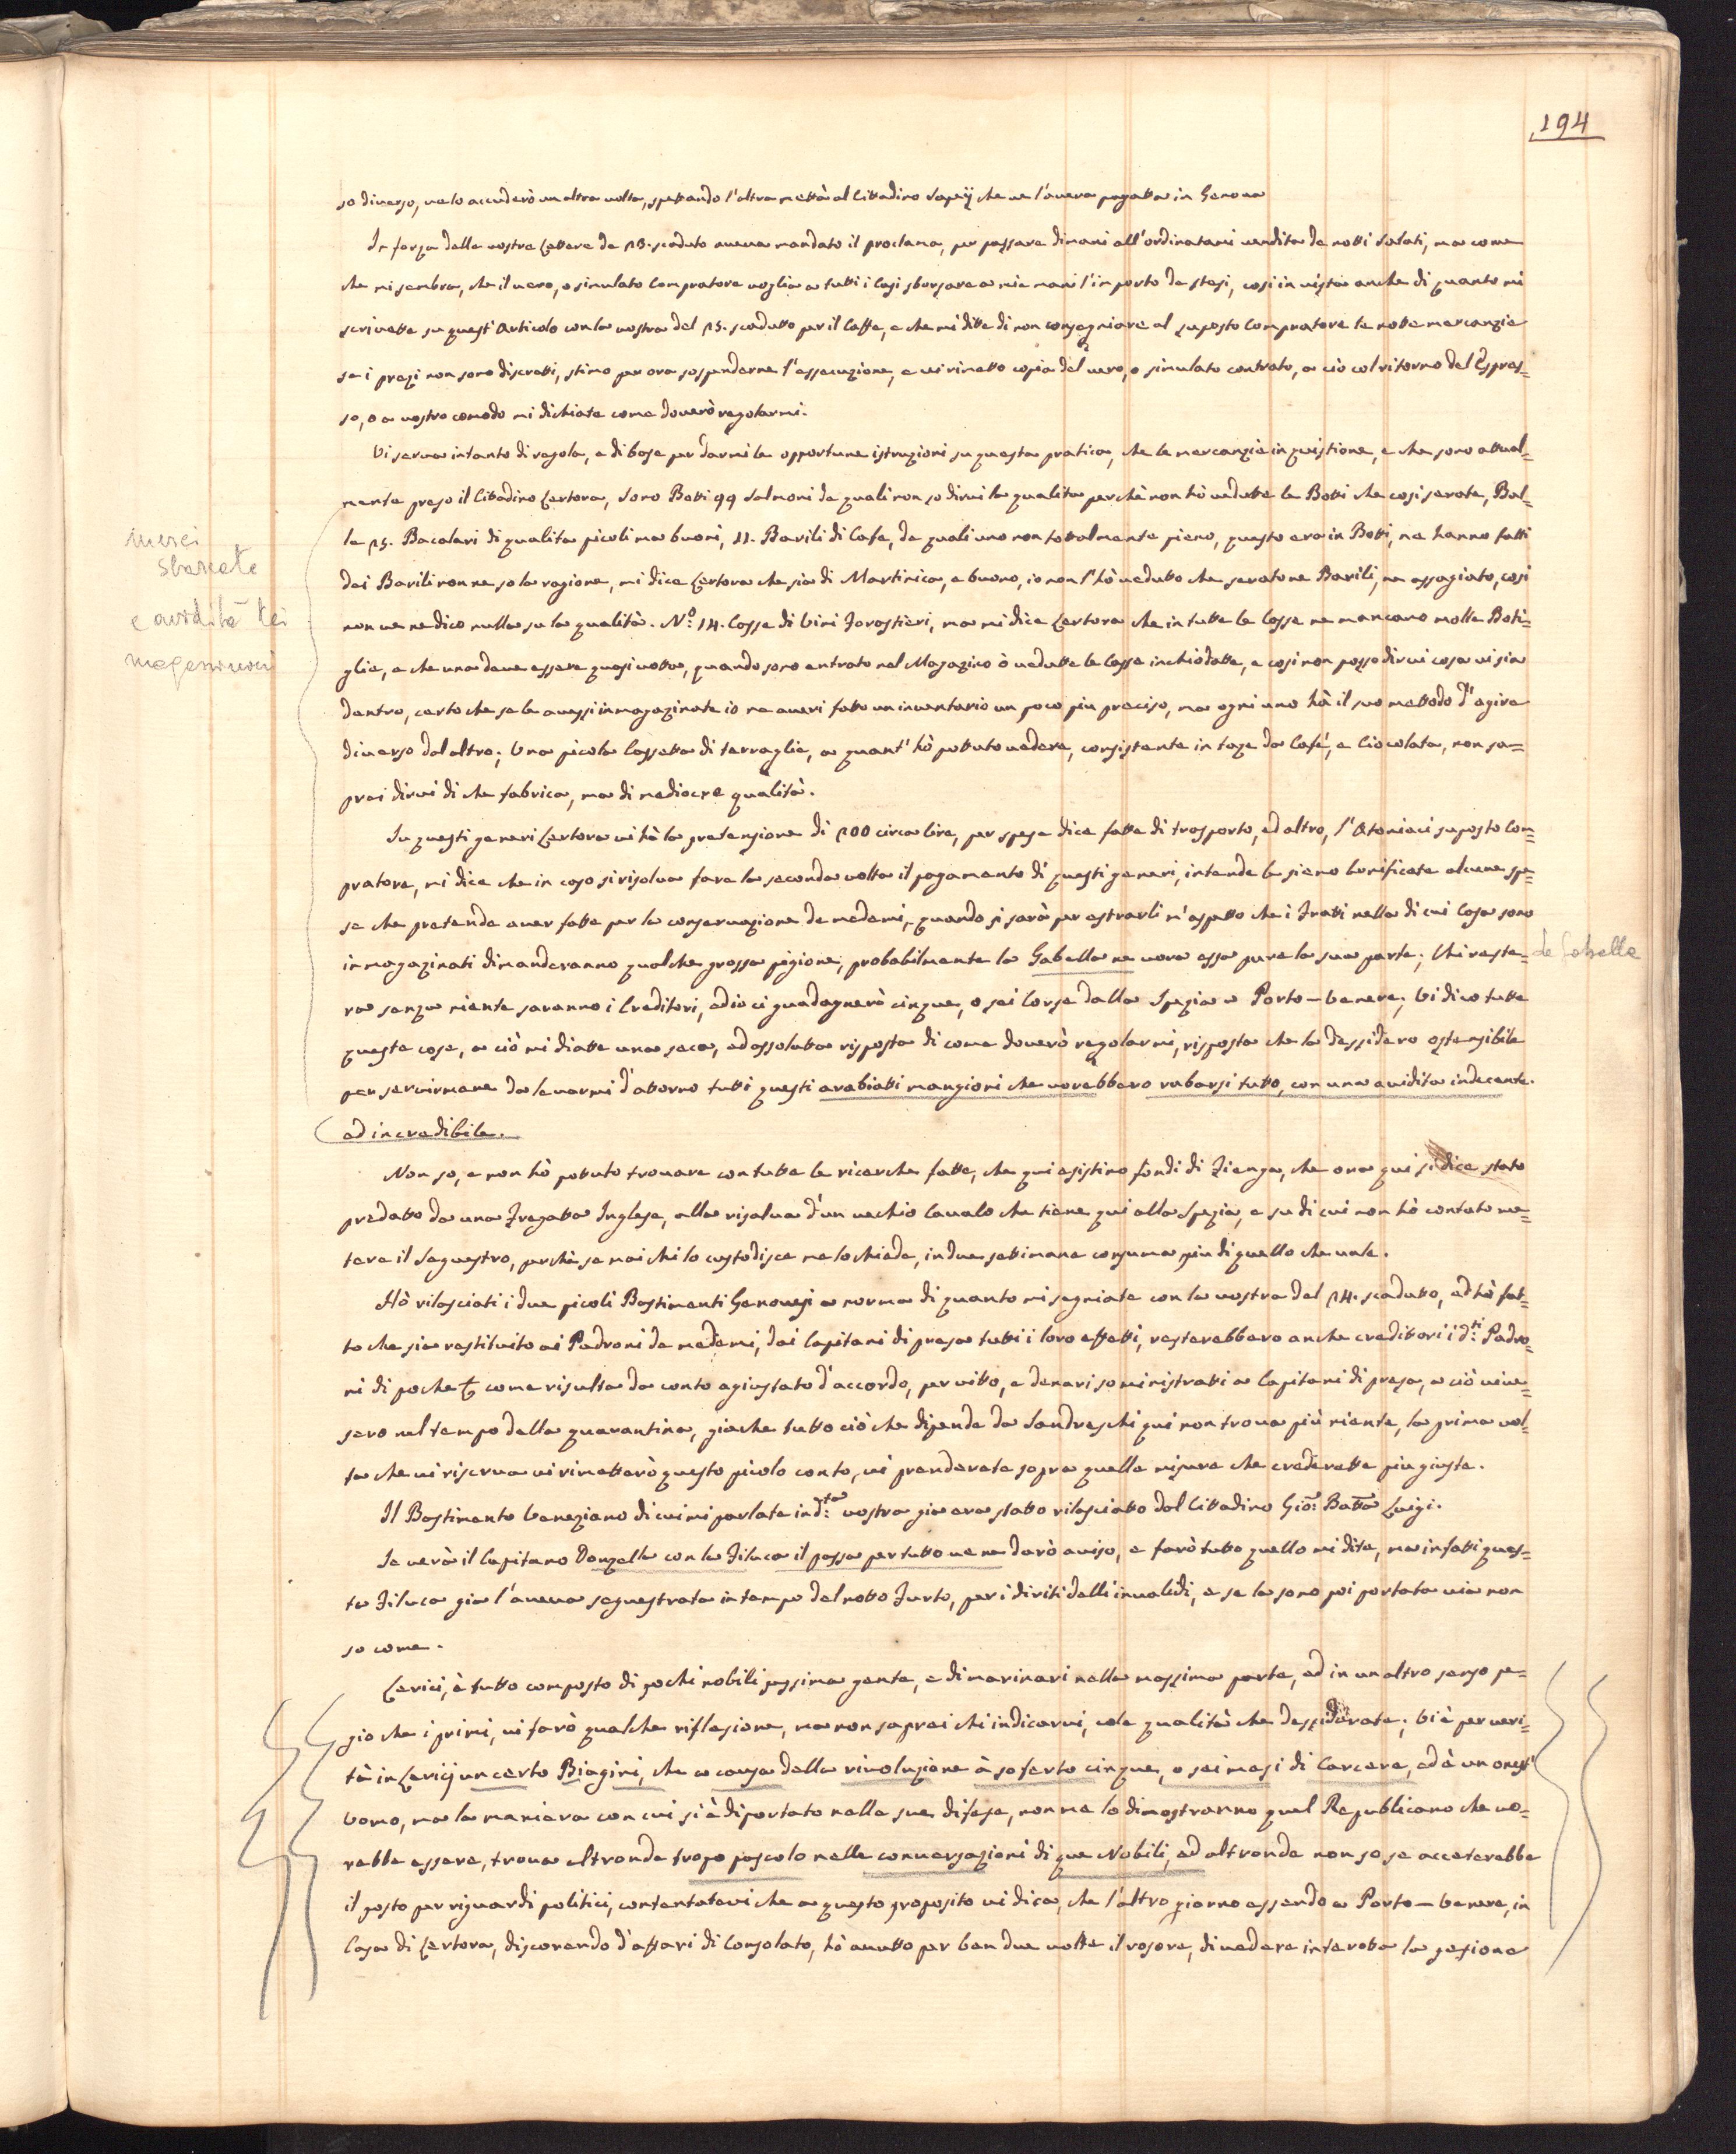 194
so diverso, ve lo accuderò un altra volta, spettando l'altra mettà al Cittadino Sapeÿ che ve l'averà pagatta in Genova
In forza della vostre Lettere de 23. scaduto aveva mandato il proclama, per passare dimani all'ordinatami vendita de notti Salati, ma come
che mi sembra, che il vero, o simulato Compratore voglia a tutti i Casi sborsare a mie mani l'importo de stesi, cosi in vista anche di quanto mi
scrivette su quest'Articolo con la vostra del 25. scadutto per il Caffe, e che mi ditte di non consegniare al suposto Compratore le notte mercanzie
se i prezi non sono discretti, stimo per ora sospenderne l'essecuzione, e vi rimetto copia del vero, o simulato contrato, a ciò col ritorno del Espres-
so, o a vostro comodo mi dichiate come doverò regolarmi.
Vi serva intanto di regola, e di base per darmi le opportune istruzioni su questa pratica, che le mercanzie in quistione, e che sono attual-
mente preso il Cittadino Lertora, sono Botti 99 Salmoni de quali non so dirvi la qualita perchè non hò vedutte le Botti che cosi serate, Bal-
le 25. Bacalari di qualita picoli ma buoni, 11. Barili di Cafe, de quali uno non tottalmente pieno, questo era in Botti, ne hanno fatti
dei Barili non ne so la ragione, mi dice Lertora che sia di Martinica, e buono, io non l'hò vedutto che serato ne Barili, ne assagiato, cosi
non ve ne dico nulla su la qualità. Nº. 14. Casse di Vini Forastieri, ma mi dice Lertora che in tutte le Casse ne mancano molte Boti-
glie, e che una deve essere quasi votta, quando sono entrato nel Magazino ò vedutte le Casse inchiodatte, e cosi non posso dirvi cosa vi sia
dentro, certo che se le avessi inmagazinate io ne averi fatto un inventario un poco piu preciso, ma ogni uno hà il suo mettodo d'agire
diverso dal altro; Una picola Cassetta di terraglie, a quant'hò pottuto vedere, consistente in taze da Cafè, e Ciocolata, non sa-
prei dirvi di che fabrica, ma di mediocre qualità.
Su questi generi Lertora vi hà la pretensione di 200 circa Lire, per spese dice fatte di trasporto, ed altro, l' suposto Com-
pratore, mi dice che in caso si risolva fare la seconda volta il pagamento di questi generi, intende le sieno bonificate alcune spe-
se che pretende aver fatte per la conservazione de medemi, quando si sarà per estrarli m'aspetto che i Fratti nella di cui Casa sono
inmagazinati dimanderanno qualche grossa pigione, probabilmente la Gabella ne vora essa pure la sua parte; Chi reste-
ra senza niente saranno i Creditori, ed io ci guadagnerò cinque, o sei Corse dalla Spezia a Porto-Venere; Vi dico tutte
queste cose, a ciò mi diatte una seca, ed assolutta risposta di come doverò regolarmi, risposta che la dessidero ostensibile
per servirmene da levarmi d'atorno tutti questi arabiatti mangioni che vorebbero rubarsi tutto, con una avidita indecente.
ed incredibile.
Non so, e non hò pottuto trovare con tutte le ricerche fatte, che qui esistino fondi di Zienga, che ora qui si dice stato
predatto da una Fregatta Inglese, alla risalva d'un vechio Cavalo che tiene qui alla Spezia, e su di cui non hò contato me-
tere il Seguestro, perchè se mai chi lo custodisce me lo chiede, in due settimane consuma piu di quello che vale.
Hò rilasciati i due picoli Bastimenti Genovesi a norma di quanto mi segniate con la vostra del 24. scadutto, ed hò fat-
to che sia restituito ai Padroni de medemi, dai Capitani di presa tutti i loro effetti, resterebbero anche creditori i d:ti Padro-
ni di poche £ come risulta da conto agiustato d'accordo, per vitto, e denari soministratti a Capitani di presa, a ciò vive-
sero nel tempo della quarantina, giache tutto ciò che dipende da Sandreschi qui non trova più niente, la prima vol-
ta che vi riscriva vi rimetterò questo picolo conto, vi prenderete sopra quelle misure che crederette piu giuste.
Il Bastimento Veneziano di cui mi parlate in d:ta vostra gia era statto rilasciatto dal Cittadino Gio: Batta Luigi.
Se verà il Capitano Donzella con la Filuca il passa per tutto ve ne darò aviso, e farò tutto quello mi dite, ma infatti ques-
ta Filuca gia l'aveva seguestrata in tempo del notto Furto, per i diriti delli invalidi, e se la sono poi portata via non
so come.
Lerici, è tutto composto di pochi nobili pessima gente, e di marinari nella massima parte, ed in un altro senso pe-
gio che i primi, vi farò qualche riflesione, ma non saprei chi indicarvi, co le qualità che dessiderate; Vi è per veri-
tà in Lericÿ un certo Biagini, che a causa della rivoluzione à soferto cinque, o sei mesi di Carcere, ed è un onest'
Uomo, ma la maniera con cui si è diportato nelle sue difese, non me lo dimostranno quel Republicano che vo-
rebbe essere, trova altronde tropo pascolo nelle conversazioni di que Nobili, ed altronde non so se acceterebbe
il posto per riguardi politici, contentatevi che a questo proposito vi dica, che l'altro giorno essendo a Porto-Venere, in
Casa di Lertora, discorendo d'affari di Consolato, hò avutto per ben due volte il rosore, di vedere interotta la sesione
merci
sbarcate
e avidità dei
de Gabelle